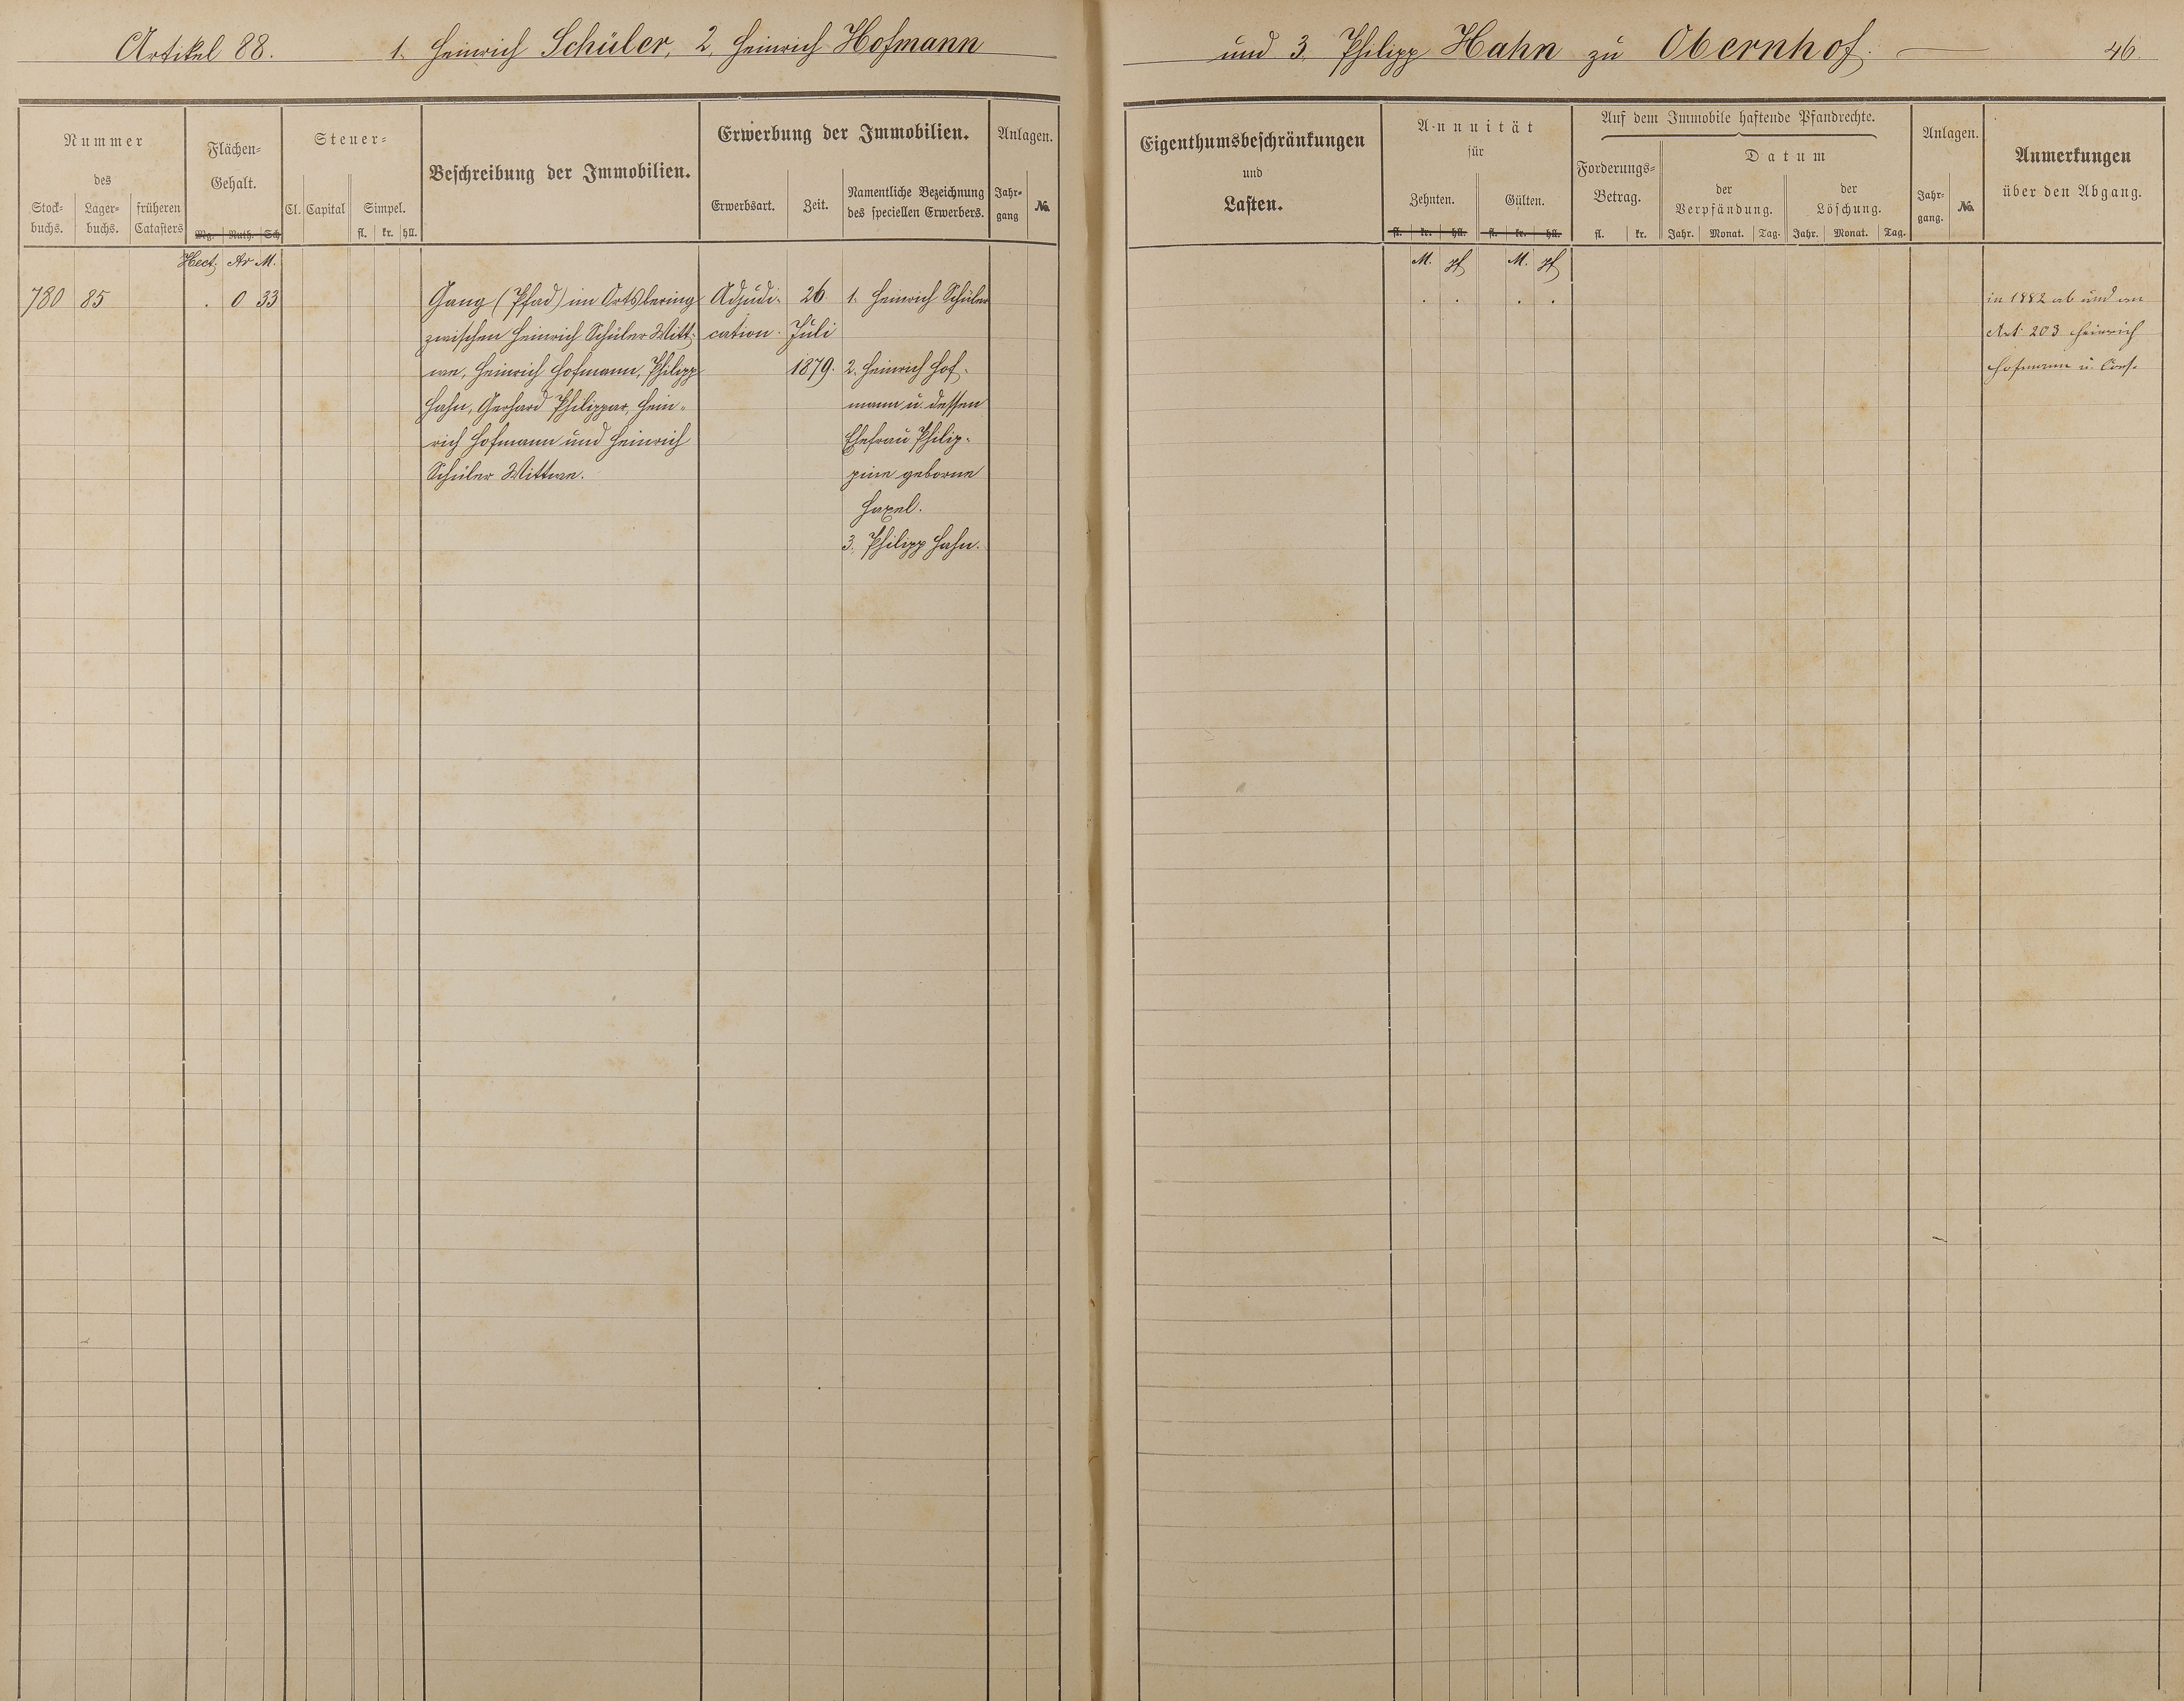 Artikel 88. 1. Heinrich Schüler, 2. Heinrich Hofmann und 3. Philipp Hahn zu Obernhof. 46.
Nummer des
Stock-buchs. Lager-buchs. früheren Catasters
Flächen-Gehalt.
Mg. Ruth. Sch.
Steuer-
Cl. Capital Simpel.
fl. kr. hll.
Beschreibung der Immobilien.
Erwerbung der Immobilien.
Erwerbsart. Zeit. Namentliche Bezeichnung des speciellen Erwerbers.
Anlagen.
Jahr-gang No.
Eigenthumsbeschränkungen
und
Lasten.
Annuität
für
Zehnten. Gülten.
fl. kr. hll. fl. kr. hll.
Auf dem Immobile haftende Pfandrechte.
Forderungs-Betrag.
fl. kr.
Datum
der Verpfändung. der Löschung.
Jahr. Monat. Tag. Jahr. Monat. Tag.
Anlagen.
Jahr-gang. No.
Anmerkungen
über den Abgang.
Hect. Ar M.
M. Pf M. Pf
780 85 . 0 33
Gang (Pfad) im Ortsbering
zwischen Heinrich Schüler Witt-
we, Heinrich Hofmann, Philipp
Hahn, Gerhard Philippar, Hein-
rich Hofmann und Heinrich
Schüler Wittwe.
Adjudi-
cation.
26
Juli
1879.
1. Heinrich Schüler
2. Heinrich Hof-
mann u. dessen
Ehefrau Philip-
pine geborne
Haxel.
3. Philipp Hahn.
. . . .
in 1882 ab und an
Art. 203 Heinrich
Hofmann u. Cons.